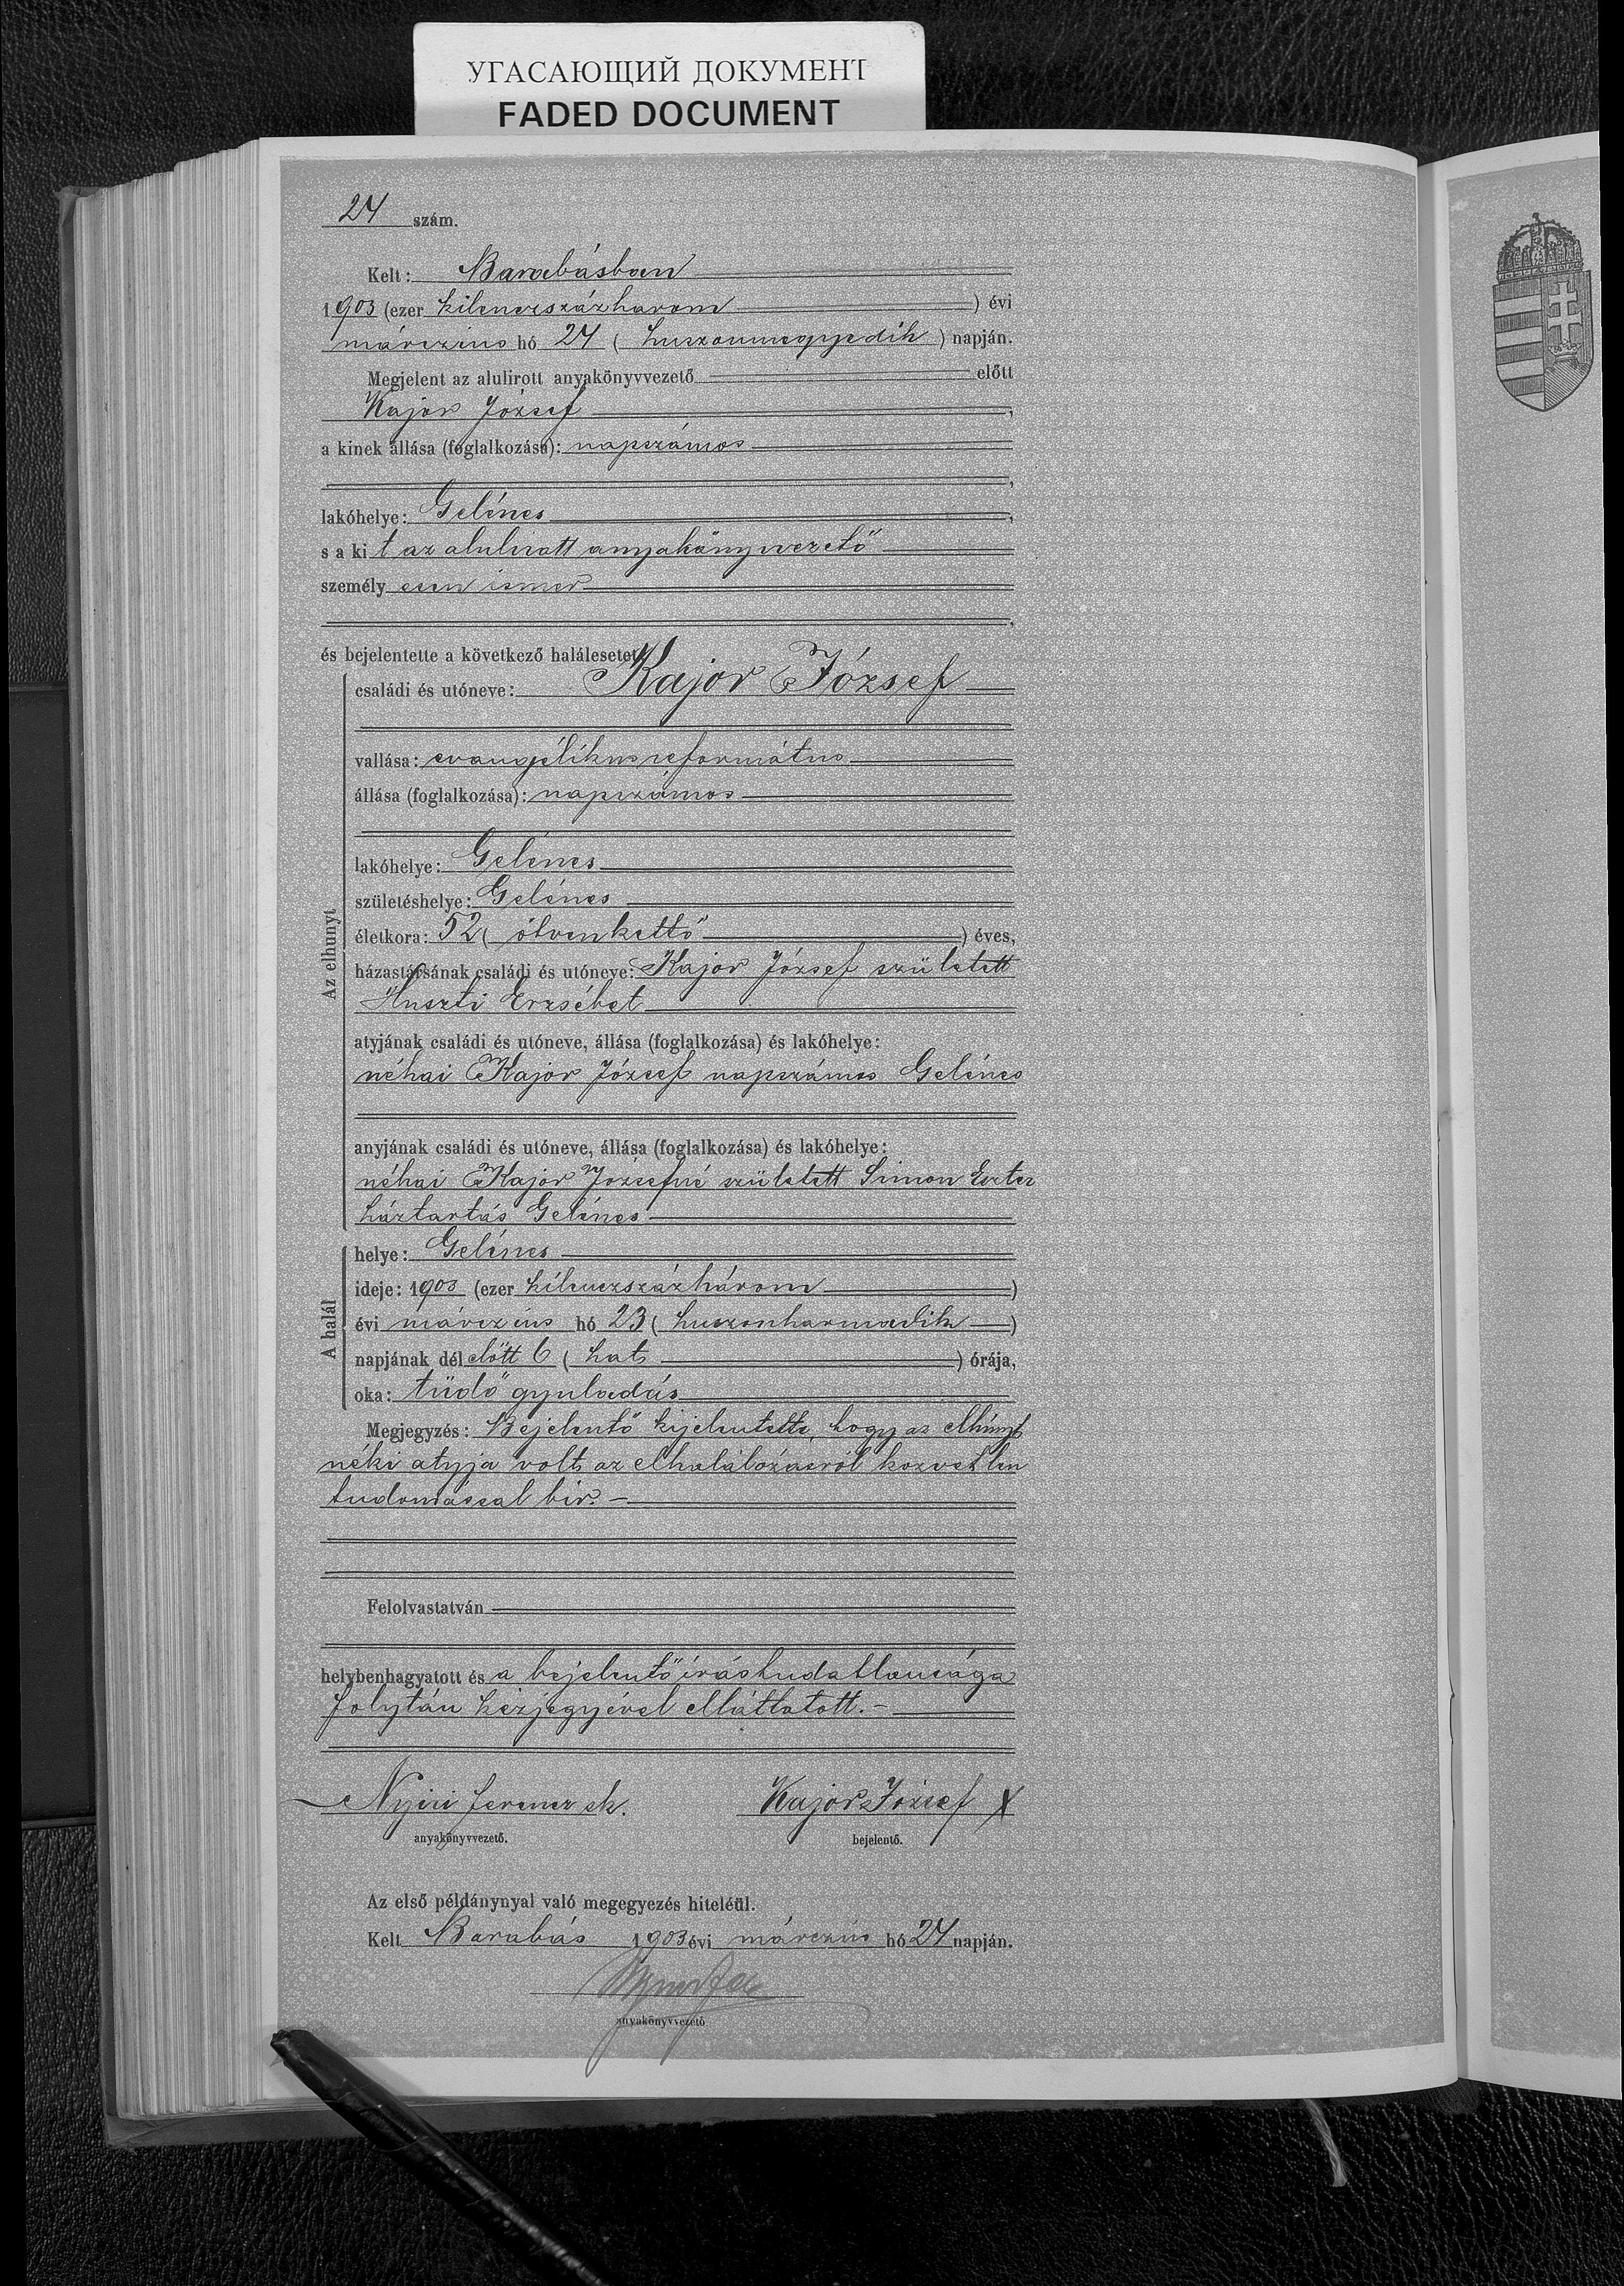 УГАСАЮЩИЙ ДОКУМЕНТ
FADED DOCUMENT
24 szám.
Kelt: Barabásban
1903 (ezer kilenczszázharom) évi
márczius hó 24 (huszonnegyedik) napján.
Megjelent az alulirott anyakönyvvezető előtt
Kajor József,
a kinek állása (foglalkozása): napszámos
,
lakóhelye: Gelénes,
s a kit az alulirott anyakönyvvezető
személyesen ismer
,
és bejelentette a következő halálesetet:
Az elhunyt
családi és utóneve: Kajor József
vallása: evangélikus református
állása (foglalkozása): napszámos
lakóhelye: Gelénes
születéshelye: Gelénes
életkora: 52 (ötvenkettő) éves,
házastársának családi és utóneve: Kajor József született
Huszti Erzsébet
atyjának családi és utóneve, állása (foglalkozása) és lakóhelye:
néhai Kajor József napszámos Gelénes
anyjának családi és utóneve, állása (foglalkozása) és lakóhelye:
néhai Kajor Józsefné született Simon Eszter
háztartás Gelénes
A halál
helye: Gelénes
ideje: 1903 (ezer kilenczszázhárom)
évi márczius hó 23 (huszonharmadik)
napjának délelőtt 6 (hat) órája,
oka: tüdőgyuladás
Megjegyzés: Bejelentő kijelentette, hogy az elhúnyt
néki atyja volt, az elhalálozásról közvetlen
tudomással bir. -
Felolvastatván
helybenhagyatott és a bejelentő irástudatlansága
folytán kézjegyével elláttatott. -
Nyiri Ferencz sk. Kajor József X
anyakönyvvezető. bejelentő.
Az első példánynyal való megegyezés hiteléül.
Kelt Barabás 1903 évi márczius hó 24 napján.
anyakönyvvezető